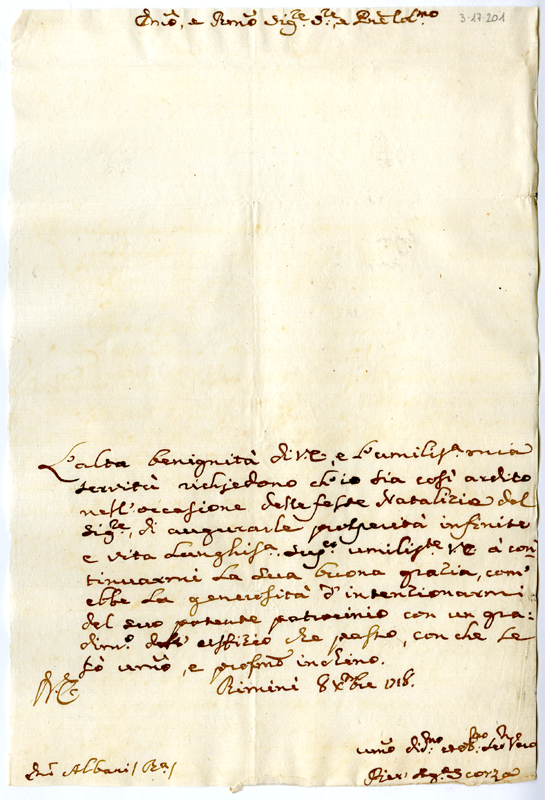 Emõ, e Remõ Sig.re S.re, e Prõn Col.mo
3-17-201
L'alta benignità di V.E., e l'umilis.a mia
servitù richiedono ch'io sia così ardito
nell'occasione delle feste Natalizie del
Sig.re, di augurarle prosperità infinite
e vita lunghis.a. Sup.co umilis.te V.E. à con-
tinuarmi la sua buona grazia, com'
ebbe la generosità d'intenzionarmi
del suo potente patrocinio con un gra-
dim.o uffizio che pasto, con che le
fò umõ, e profmõ inchino.
Rimini 8 Xbre 1718.
V.E.
umõ div.mo ed obb.mo Ser.re Vero
Emõ Albani / Ra/
Pier' Ag.o Scorza